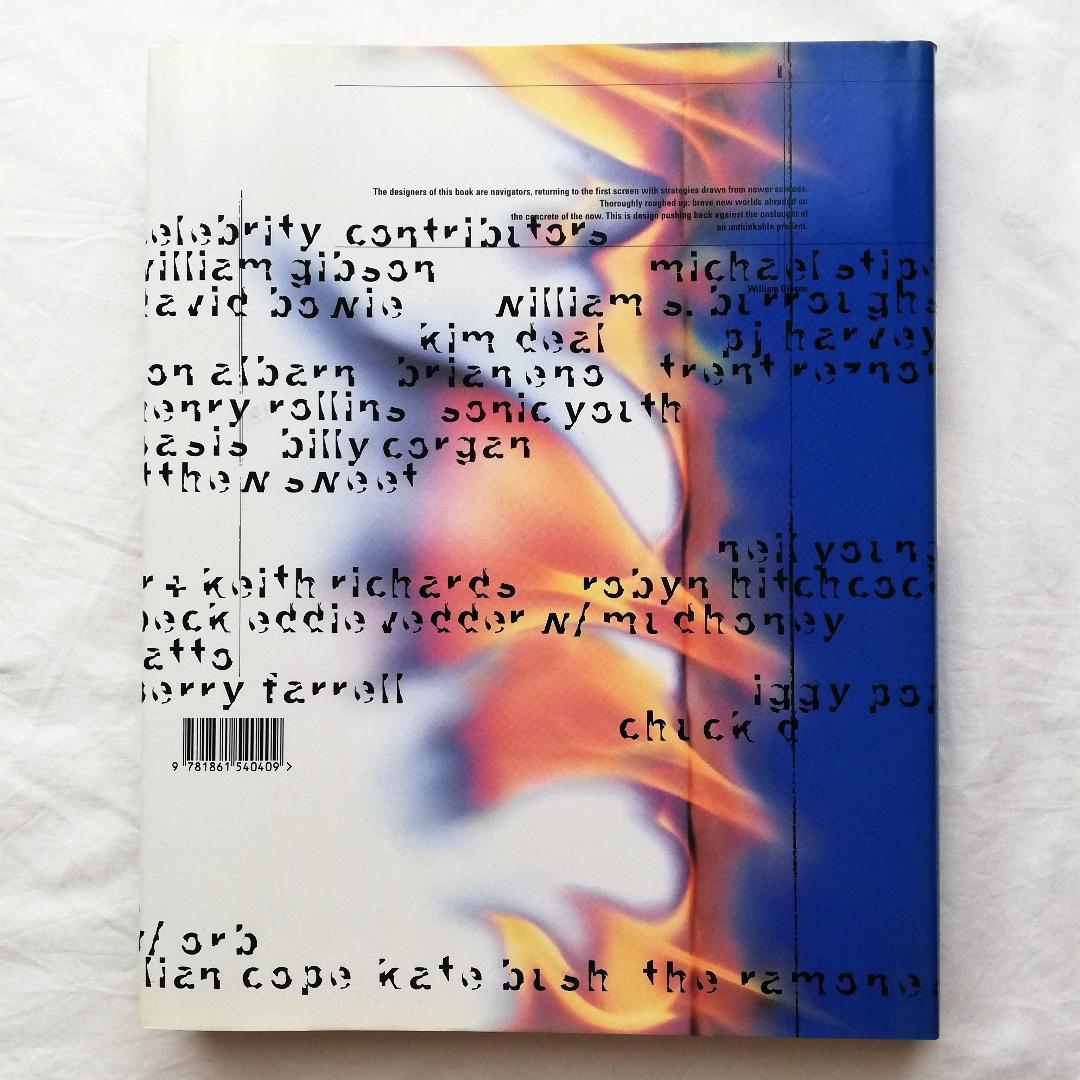 The designers of this book are navigators, returning to the first screen with strategies drawn from newer screens.
Thoroughly roughed up: brave new worlds abraded on
the concrete of the now. This is design pushing back against the onslaught of
an unthinkable present.
William Gibson
elebrity contributors
william gibson michael stipe
david bowie william s. burroughs
kim deal pj harvey
on albarn brian eno trent reznor
henry rollins sonic youth
oasis billy corgan
tthew sweet
neil young
r + keith richards robyn hitchcoc
beck eddie vedder w/ mudhoney
atto
perry farrell iggy pop
chuck d
9 781861 540409 >
w/ orb
lian cope kate bush the ramones